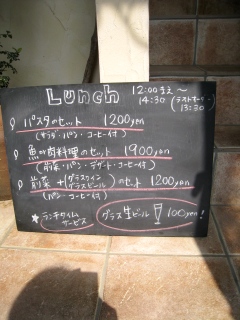 Lunch 12:00まえ〜
14:30 (ラストオーダー
13:30)
パスタのセット 1200yen
(サラダ・パン・コーヒー付)
魚か肉料理のセット 1900yen
(前菜・パン・デザート・コーヒー付)
前菜 + (グラスワイン グラスビール) のセット 1200yen
(パン・コーヒー付)
★ ランチタイム サービス グラス生ビール 100yen!